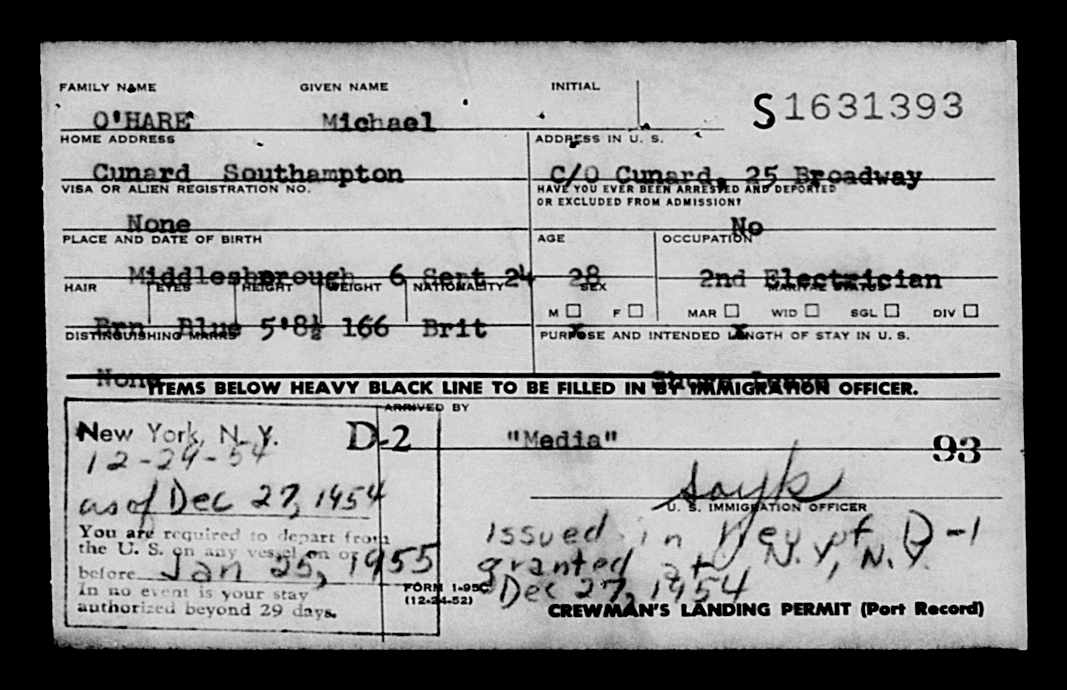 FAMILY NAME GIVEN NAME INITIAL
O'HARE Michael S1631393
HOME ADDRESS ADDRESS IN U. S.
Cunard Southampton C/O Cunard, 25 Broadway
VISA OR ALIEN REGISTRATION NO. HAVE YOU EVER BEEN ARRESTED AND DEPORTED
OR EXCLUDED FROM ADMISSION?
None No
PLACE AND DATE OF BIRTH AGE OCCUPATION
Middlesborough 6 Sept 24 28 2nd Electrician
HAIR EYES HEIGHT WEIGHT NATIONALITY SEX MARITAL STATUS
M F MAR WID SGL DIV
Brn Blue 5'8½ 166 Brit X X
DISTINGUISHING MARKS PURPOSE AND INTENDED LENGTH OF STAY IN U. S.
None Shore Leave
ITEMS BELOW HEAVY BLACK LINE TO BE FILLED IN BY IMMIGRATION OFFICER.
ARRIVED BY
New York, N. Y. D-2 "Media" 93
12-29-54
as of Dec 27, 1954
U. S. IMMIGRATION OFFICER
You are required to depart from
the U. S. on any vessel on or
before Jan 25, 1955
In no event is your stay
authorized beyond 29 days.
Issued in lieu of D-1
granted at N.Y., N.Y.
Dec 27, 1954
FORM I-95C
(12-24-52)
CREWMAN'S LANDING PERMIT (Port Record)